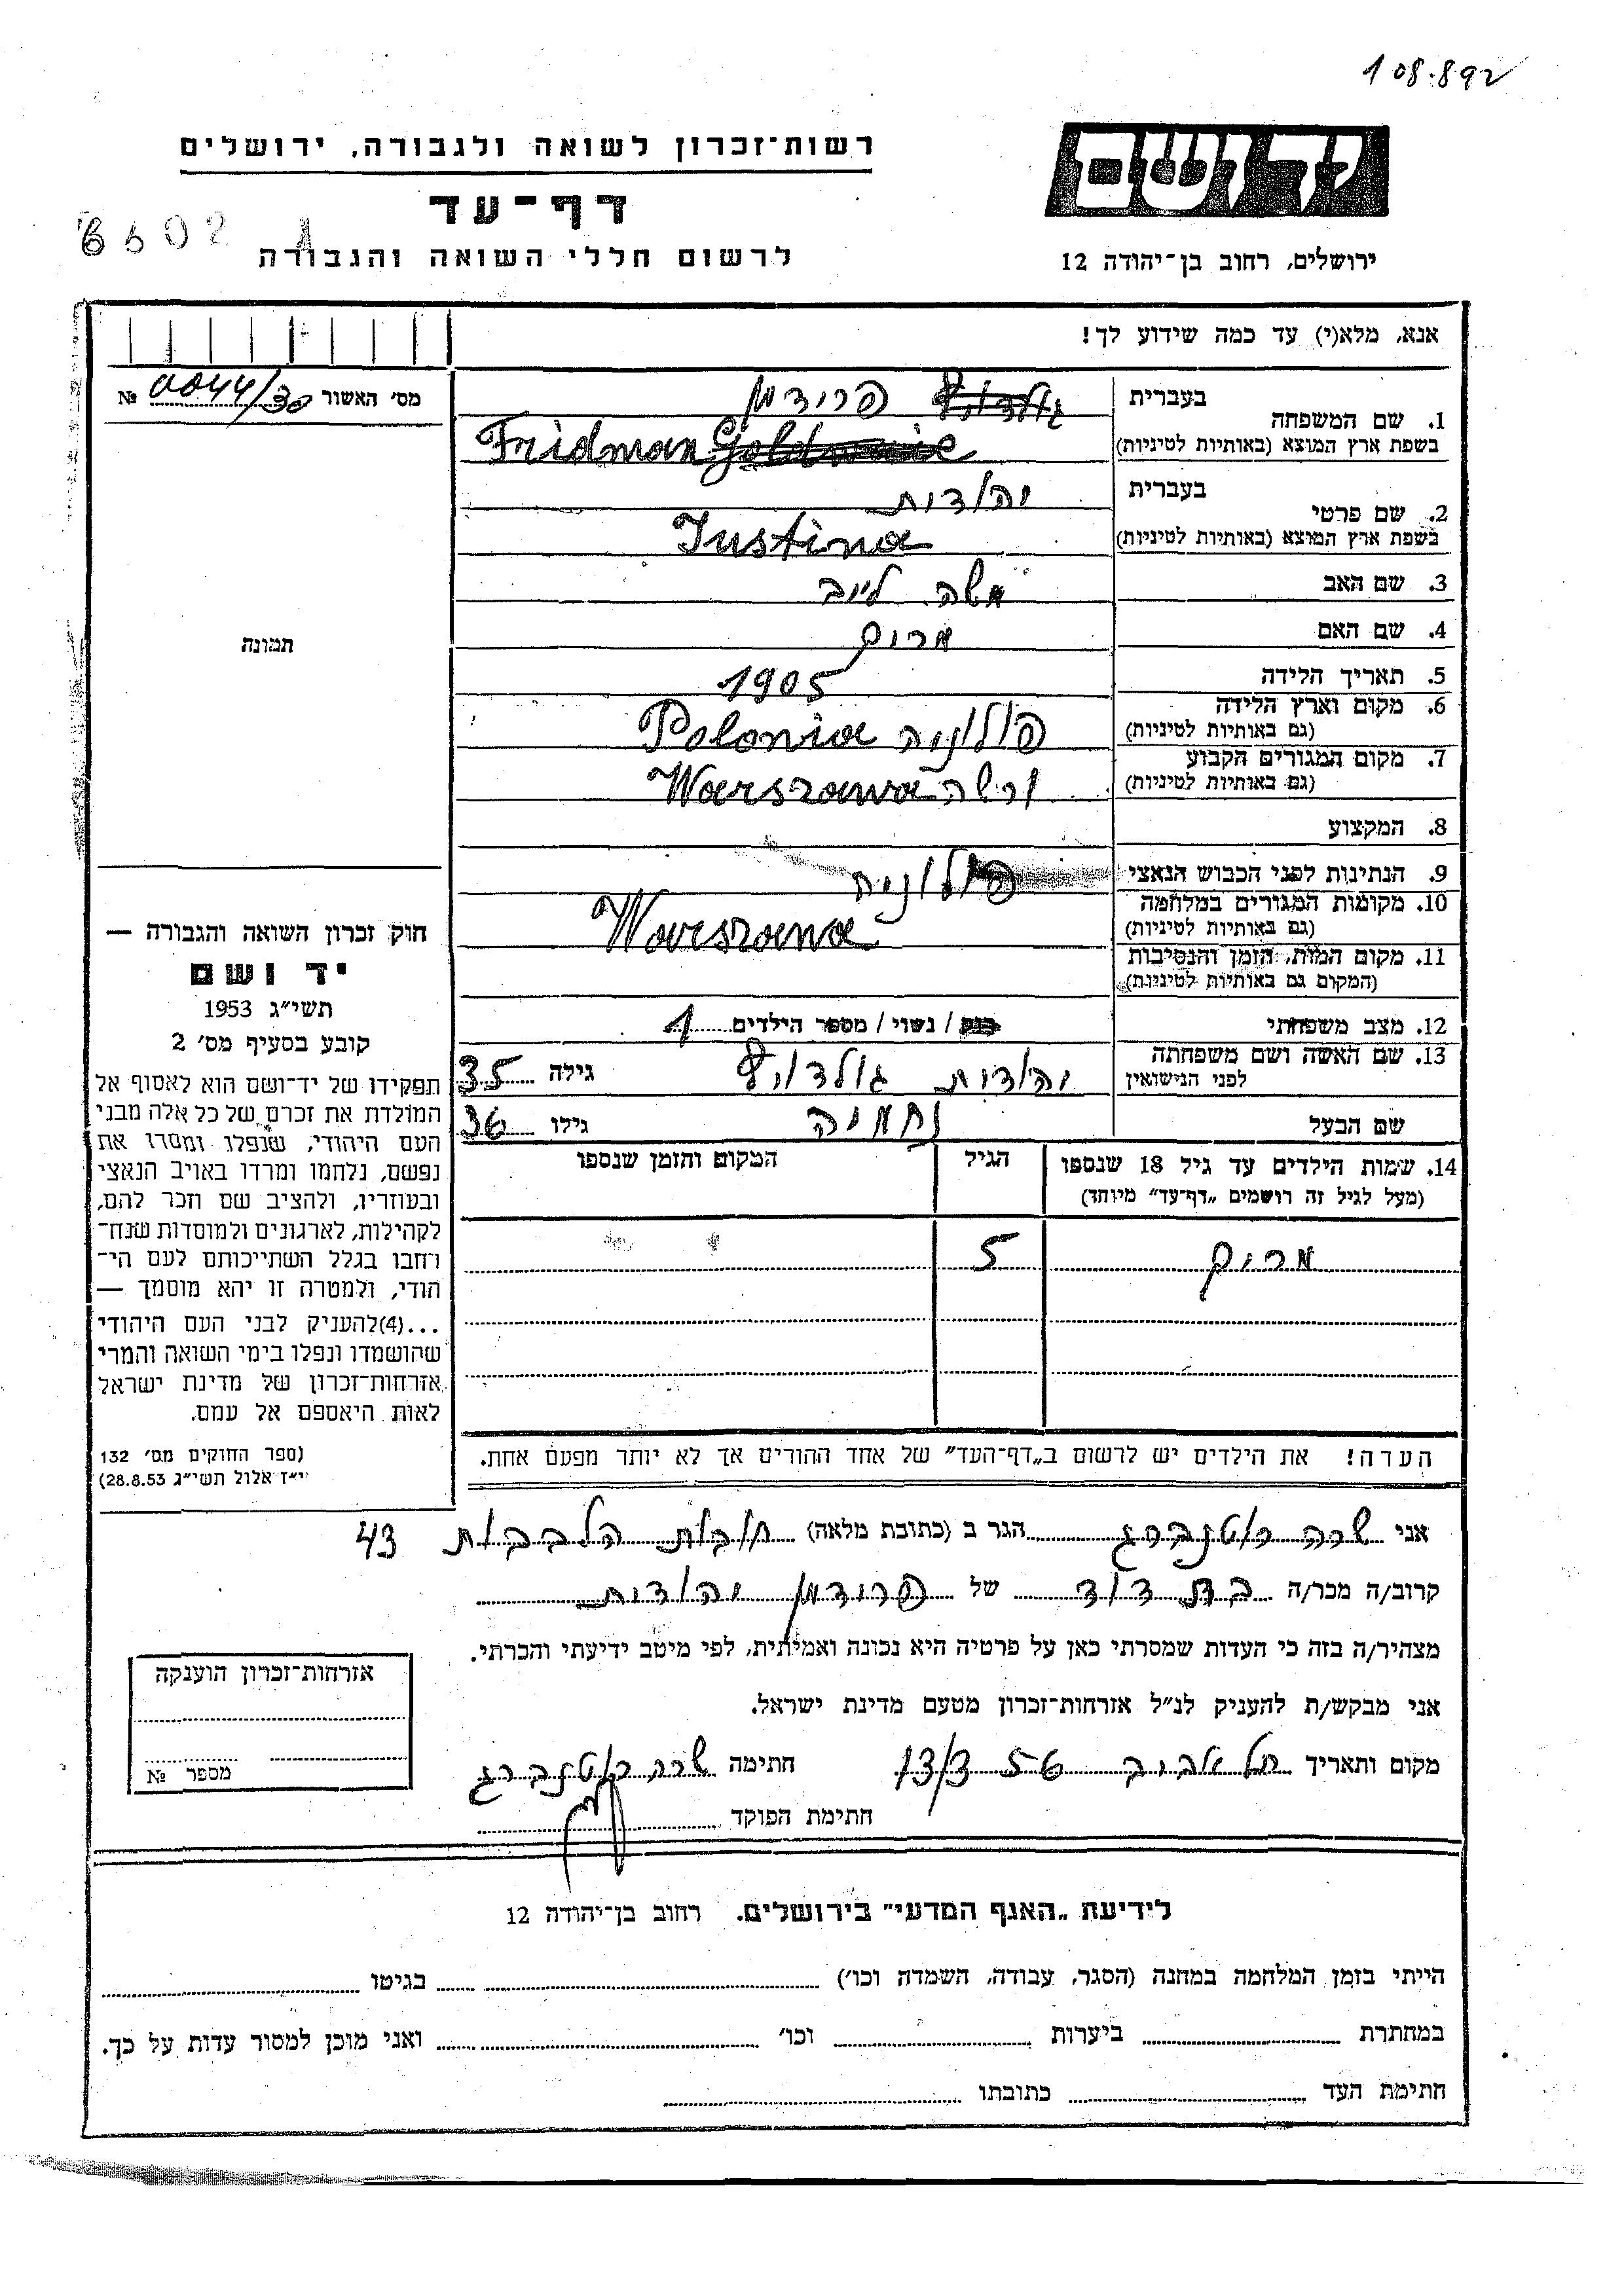 108.892
יד ושם
רשות־זכרון לשואה ולגבורה, ירושלים
דף־עד
לרשום חללי השואה והגבורה
ירושלים, רחוב בן־יהודה 12
אנא, מלא(י) עד כמה שידוע לך!
מס׳ האשור 0044/30 №
1. שם המשפחה בעברית פרידמן
בשפת ארץ המוצא (באותיות לטיניות) Fridman
2. שם פרטי בעברית יהודית
בשפת ארץ המוצא (באותיות לטיניות) Iustina
3. שם האב משה לייב
4. שם האם מרים
5. תאריך הלידה 1905
6. מקום וארץ הלידה (גם באותיות לטיניות) פולניה Polonia
7. מקום המגורים הקבוע (גם באותיות לטיניות) ורשה Warszawa
8. המקצוע
9. הנתינות לפני הכבוש הנאצי פולניה
10. מקומות המגורים במלחמה (גם באותיות לטיניות) Warszawa
11. מקום המות, הזמן והנסיבות (המקום גם באותיות לטיניות)
12. מצב משפחתי רווק / נשוי / מספר הילדים 1
13. שם האשה ושם משפחתה לפני הנישואין יהודית גילה 35
שם הבעל נחמיה גילו 36
14. שמות הילדים עד גיל 18 שנספו הגיל המקום והזמן שנספו
(מעל לגיל זה רושמים „דף־עד” מיוחד)
מרים 5
הערה! את הילדים יש לרשום ב„דף־העד” של אחד ההורים אך לא יותר מפעם אחת.
תמונה
חוק זכרון השואה והגבורה —
יד ושם
תשי״ג 1953
קובע בסעיף מס׳ 2
תפקידו של יד־ושם הוא לאסוף אל
המולדת את זכרם של כל אלה מבני
העם היהודי, שנפלו ומסרו את
נפשם, נלחמו ומרדו באויב הנאצי
ובעוזריו, ולהציב שם וזכר להם,
לקהילות, לארגונים ולמוסדות שנח־
רחבו בגלל השתייכותם לעם הי־
הודי, ולמטרה זו יהא מוסמך —
...(4)להעניק לבני העם היהודי
שהושמדו ונפלו בימי השואה והמרי
אזרחות־זכרון של מדינת ישראל
לאות היאספם אל עמם.
(ספר החוקים מס׳ 132
י״ז אלול תשי״ג 28.8.53)
אני שרה רוטנברג הגר ב (כתובת מלאה) חובות הלבבות 43
קרוב/ה מכר/ה בת דוד של פרידמן יהודית
מצהיר/ה בזה כי העדות שמסרתי כאן על פרטיה היא נכונה ואמיתית, לפי מיטב ידיעתי והכרתי.
אני מבקש/ת להעניק לנ״ל אזרחות־זכרון מטעם מדינת ישראל.
מקום ותאריך תל אביב 13/3 56 חתימה שרה רוטנברג
חתימת הפוקד
אזרחות־זכרון הוענקה
מספר №
לידיעת „האגף המדעי” בירושלים. רחוב בן־יהודה 12
הייתי בזמן המלחמה במחנה (הסגר, עבודה, השמדה וכו׳) בגיטו
במחתרת ביערות וכו׳ ואני מוכן למסור עדות על כך.
חתימת העד כתובתו